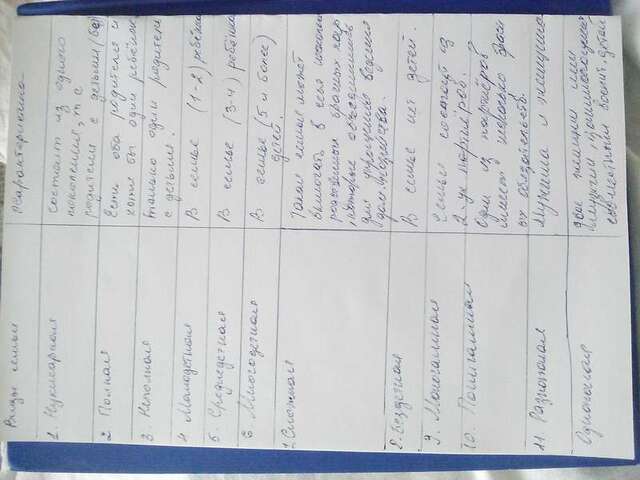 Виды семьи
Характеристика
1. Нуклеарная
состоит из одного
поколения, т е
родители с детьми (без)
2. Полная
Есть оба родителя и
хотя бы один ребёнок
3. Неполная
только один родитель
с детьми.
4 Малодетная
В семье (1-2) ребёнка
5. Среднедетная
В семье (3-4) ребёнка
6. Многодетная
В семье (5 и более)
детей.
7 Сложная
Такая семья может
включать в себя несколько
брачных пар
, которые объединились
для упрощения ведения
дом. хозяйства.
8. Бездетная
В семье нет детей.
9. Моногамная
Семья состоит из
2-ух партнёров.
10. Полигамная
Один из партнёров
имеет несколько брачн
ых обязательств.
11. Разнополая
Мужчина и женщина
Однополая
две женщины или
мужчин,
совместным воспит. детей